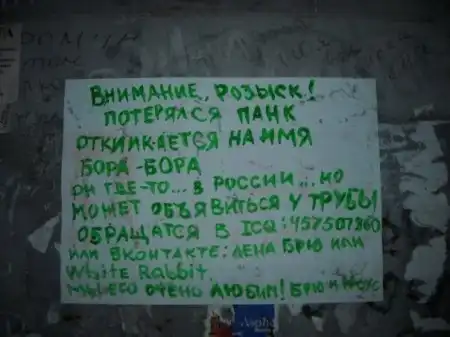 ВНИМАНИЕ, РОЗЫСК!
ПОТЕРЯЛСЯ ПАНК
ОТКЛИКАЕТСЯ НА ИМЯ
БОРА-БОРА
ОН ГДЕ-ТО... В РОССИИ... НО
МОЖЕТ ОБЪЯВИТЬСЯ У ТРУБЫ
ОБРАЩАТСЯ В ICQ: 457507860
ИЛИ ВКОНТАКТЕ: ЛЕНА БРЮ ИЛИ
White Rabbit.
МЫ ЕГО ОЧЕНО ЛЮБИМ! БРЮ И